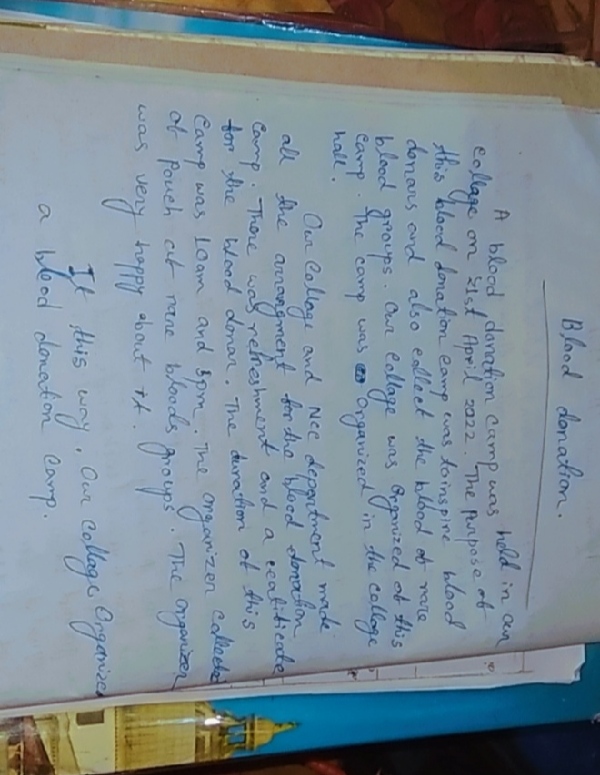 Blood donation.
A blood donation camp was held in our
collage on 21st April 2022. The purpose of
this blood donation camp was to inspire blood
donars and also collect the blood of rare
blood groups. Our collage was organized of this
camp. The camp was organized in the collage
hall.
Our collage and Ncc department made
all the arrangment for the blood donation
camp. There was refreshment and a cealibicate
for the blood donar. The duration of this
camp was 10am and 5pm. The organizer collects
of pouch of rare bloods groups. The organizer
was very happy about it.
It this way, our collage organize
a blood donation camp.